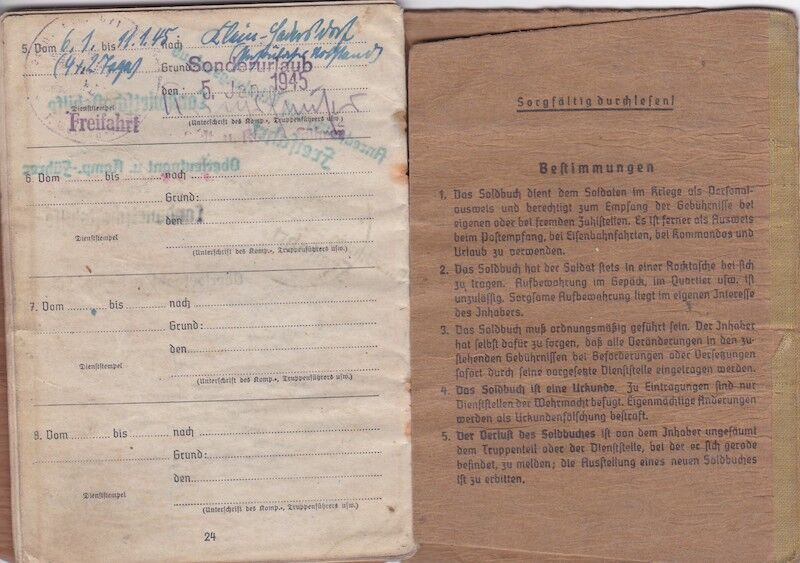 5. Vom 6.1. bis 11.1.45 nach Klein-Hadersdorf
(4+2 Tage) Grund: Sonderurlaub
den: 5. Jan. 1945
Dienststempel
(Unterschrift des Komp.-, Truppenführers usw.)
Freifahrt
6. Vom bis nach
Grund:
den
Dienststempel
(Unterschrift des Komp.-, Truppenführers usw.)
7. Vom bis nach
Grund:
den
Dienststempel
(Unterschrift des Komp.-, Truppenführers usw.)
8. Vom bis nach
Grund:
den
Dienststempel
(Unterschrift des Komp.-, Truppenführers usw.)
24
Sorgfältig durchlesen!
Bestimmungen
1. Das Soldbuch dient dem Soldaten im Kriege als Personal-
ausweis und berechtigt zum Empfang der Gebührnisse bei
eigenen oder bei fremden Zahlstellen. Es ist ferner als Ausweis
beim Postempfang, bei Eisenbahnfahrten, bei Kommandos und
Urlaub zu verwenden.
2. Das Soldbuch hat der Soldat stets in einer Rocktasche bei sich
zu tragen. Aufbewahrung im Gepäck, im Quartier usw. ist
unzulässig. Sorgsame Aufbewahrung liegt im eigenen Interesse
des Inhabers.
3. Das Soldbuch muß ordnungsmäßig geführt sein. Der Inhaber
hat selbst dafür zu sorgen, daß alle Veränderungen in den zu-
stehenden Gebührnissen bei Beförderungen oder Versetzungen
sofort durch seine vorgesetzte Dienststelle eingetragen werden.
4. Das Soldbuch ist eine Urkunde. Zu Eintragungen sind nur
Dienststellen der Wehrmacht befugt. Eigenmächtige Änderungen
werden als Urkundenfälschung bestraft.
5. Der Verlust des Soldbuches ist von dem Inhaber ungesäumt
dem Truppenteil oder der Dienststelle, bei der er sich gerade
befindet, zu melden; die Ausstellung eines neuen Soldbuches
ist zu erbitten.